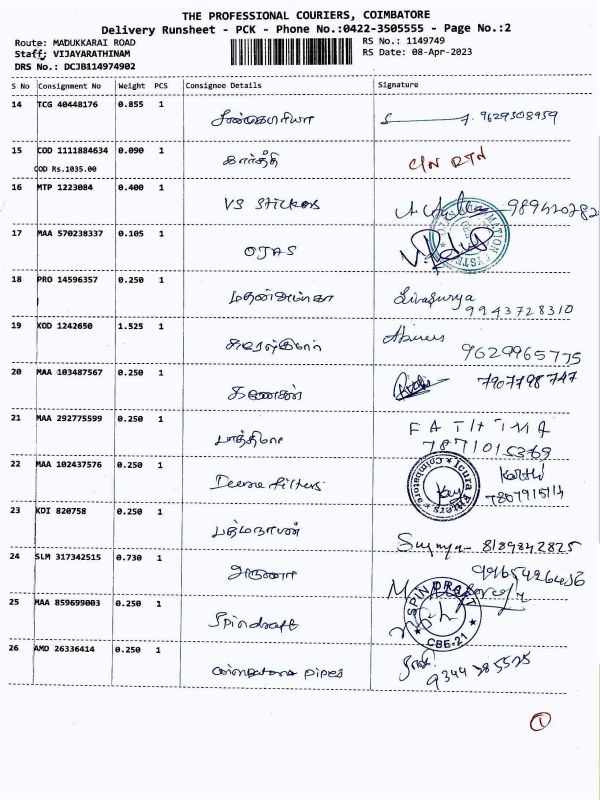 THE PROFESSIONAL COURIERS, COIMBATORE
Delivery Runsheet - PCK - Phone No.:0422-3505555 - Page No.:2
Route: MADUKKARAI ROAD RS No.: 1149749
Staff: VIJAYARATHINAM RS Date: 08-Apr-2023
DRS No.: DCJB114974902
S No Consignment No Weight PCS Consignee Details Signature
14 TCG 40448176 0.855 1 9629508959
15 COD 1111884634 0.090 1 கார்த்தி C/N RTN
COD Rs.1035.00
16 MTP 1223084 0.400 1 VS Stickers
17 MAA 570238337 0.105 1 OJAS
18 PRO 14596357 0.250 1 Sivasurya
9943728310
19 KOD 1242650 1.525 1 சுரேஷ்குமார்
9629965775
20 MAA 103487567 0.250 1 கணேசன் 7907798747
21 MAA 292775599 0.250 1 பாத்திமா FATHIMA
22 MAA 102437576 0.250 1 Deccne filters Karthi
23 KDI 820758 0.250 1 பத்மநாபன்
8189842825
24 SLM 317342515 0.730 1 அருணா
25 MAA 859699003 0.250 1 Spindraft SPIN DRAFT
CBE-21
26 AMD 26336414 0.250 1 Coimbatore pipes
1